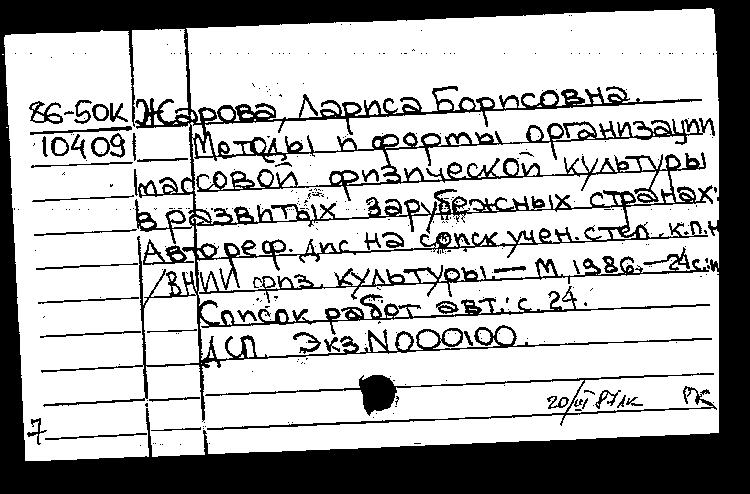 86-50К Жарова, Лариса Борисовна.
10409 Методы и формы организации
массовой физической культуры
в развитых зарубежных странах:
Автореф. дис. на соиск. учен. степ. к.п.н
/ВНИИ физ. культуры. — М., 1986. — 24с.
Список работ авт.: с. 24.
ДСП. Экз. N000100.
20/VI 87
РЖ
7